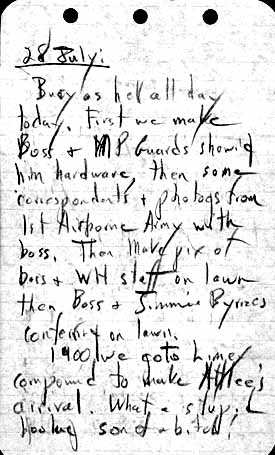 28 July:
Busy as hell all day
today. First we make
Boss & MP Guards showing
him hardware, then some
correspondents & photogs from
1st Airborne Army with
boss. Then make pix of
boss & WH staff on lawn
then Boss & Jimmie Byrnes
conferring on lawn.
1900/we go to Limey
compound to make Attlee's
arrival. What a
son of a bitch!